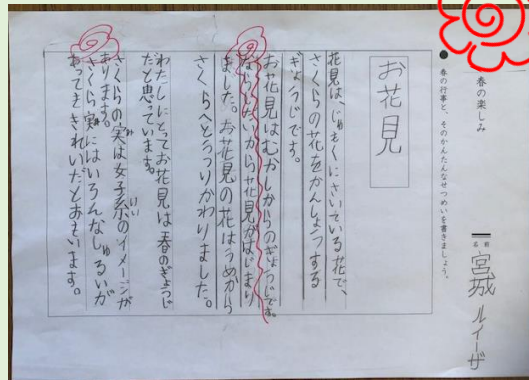 春の楽しみ
●春の行事と、そのかんたんなせつめいを書きましょう。
名前
宮城 ルイーザ
お花見
花見は、じゅもくにさいている花で、
さくらの花をかんしょうする
ぎょうじです。
お花見はむかしからのぎょうじです。
ならじだいから花見がはじまり
ました。お花見の花はうめから
さくらへとうつりかわりました。
わたしにとってお花見は春のぎょうじ
だと思っています。
さくらの実は女子系のイメージが
あります。
さくら実にはいろんなしゅるいが
あってきれいだとおもいます。